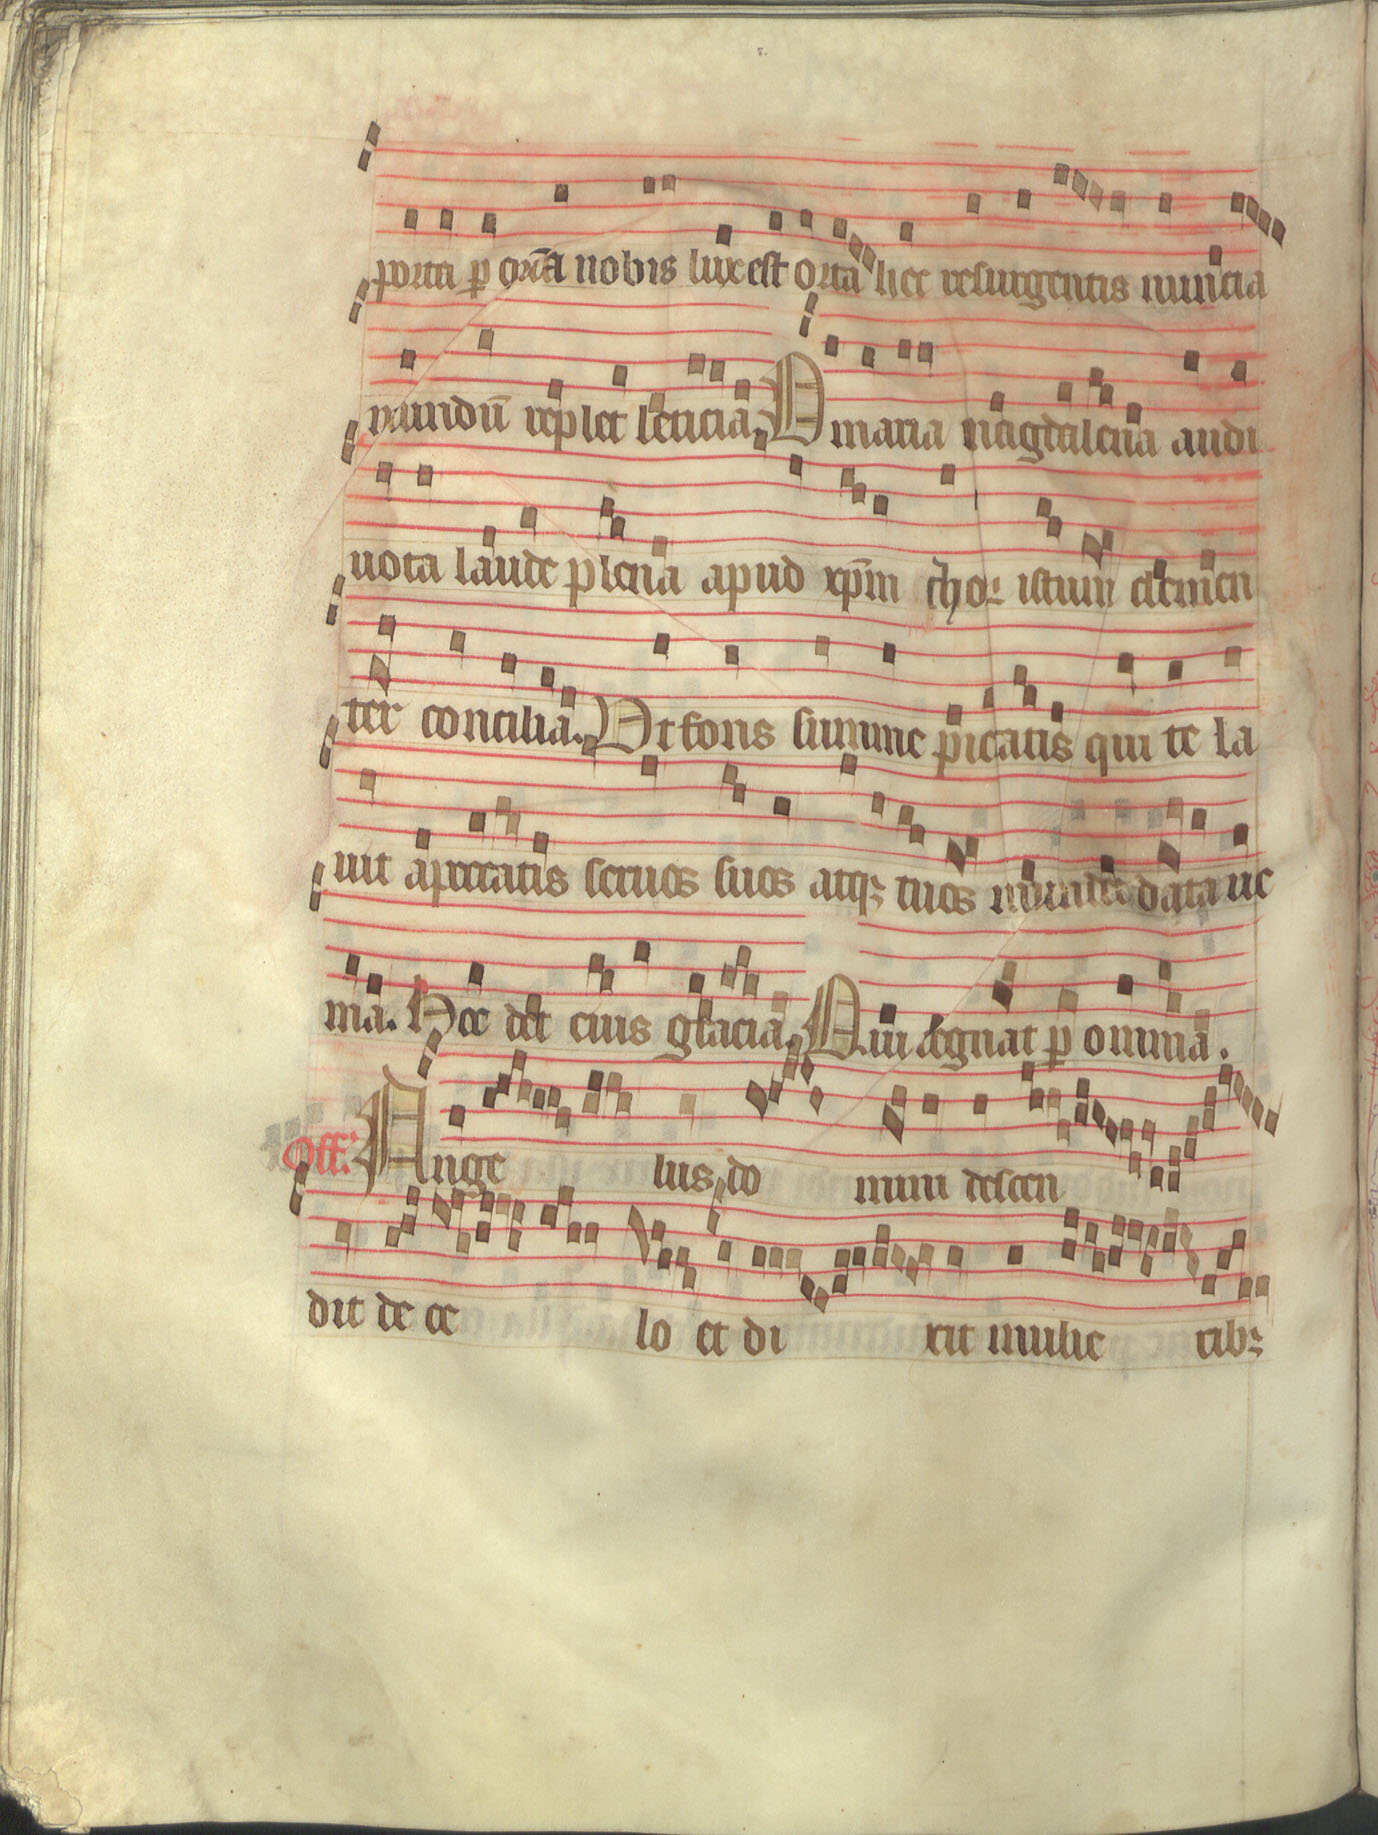 porta ꝑ quā nobis lux est orta hec resurgentis nuncia
mundū replet leticia. O maria magdalena audi
uota laude plena apud xp̄m chorꝝ istum clemen
ter concilia. Vt fons summe pietatis qui te la
uit a peccatis seruos suos atqꝫ tuos mundet data ue
nia. Hec det eius gracia. Qui regnat ꝑ omnia.
Off. Ange lus do mini descen
dit de ce lo et di xit mulie ribꝫ